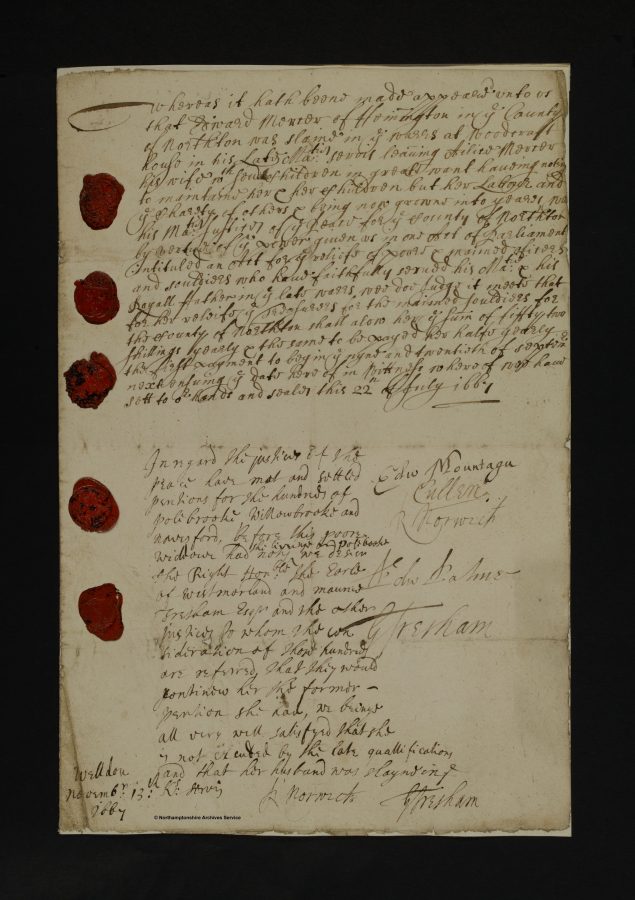 whereas it hath beene made appeare vnto us
that Edward Mercer of Hemington in ye County
of Northton was slaine in ye warrs at Woodcraft
house in his Late Maties servis leaving Allice Mercer
his wife with children in great want haveing nothing
to maintaine her & her Children but her Labour and
ye Charety of others & being now growne into yeares we
his Maties Justices of ye Peace for ye County of Northton
by vertue of ye power given us in one Act of Parliament
Intituled an Act for ye reliefe of poore & maimed officers
and souldiers who have faithfully served his Matie & his
Royall ffather in ye late warrs, wee doe Judge it meete that
for her releife ye Tresurers for the maimed souldiers for
the County of Northton shall alow her ye sum of fifty two
shillings yearly & the same to be payed her halfe yearly
the first payment to begin ye nyne and twentieth of septem
next ensuing ye date here of in Witness where of wee have
sett to or hands and seales this 22th of July 1667
Edw Mountagu
Cullen
R Norwich
Edw Palmer
G Tresham
In regard the justices of the
peace have met and settled
pentions for the hundreds of
polebrooke Willowbrooke and
navesford, before this poore
widdowe had we desire
the Right Honble the Earle
of westmorland and
Tresham Esqr and the other
justices to whom the con
sideration of those hundreds
are referred, that they would
continew her the former
pention she had, we beinge
all very well satisfyed that she
is not excluded by the late quallification
and that her husband was slayne in ye
Ks servis
Welldon
Novembr 13th
1667
R Norwich
G Tresham
© Northamptonshire Archives Service